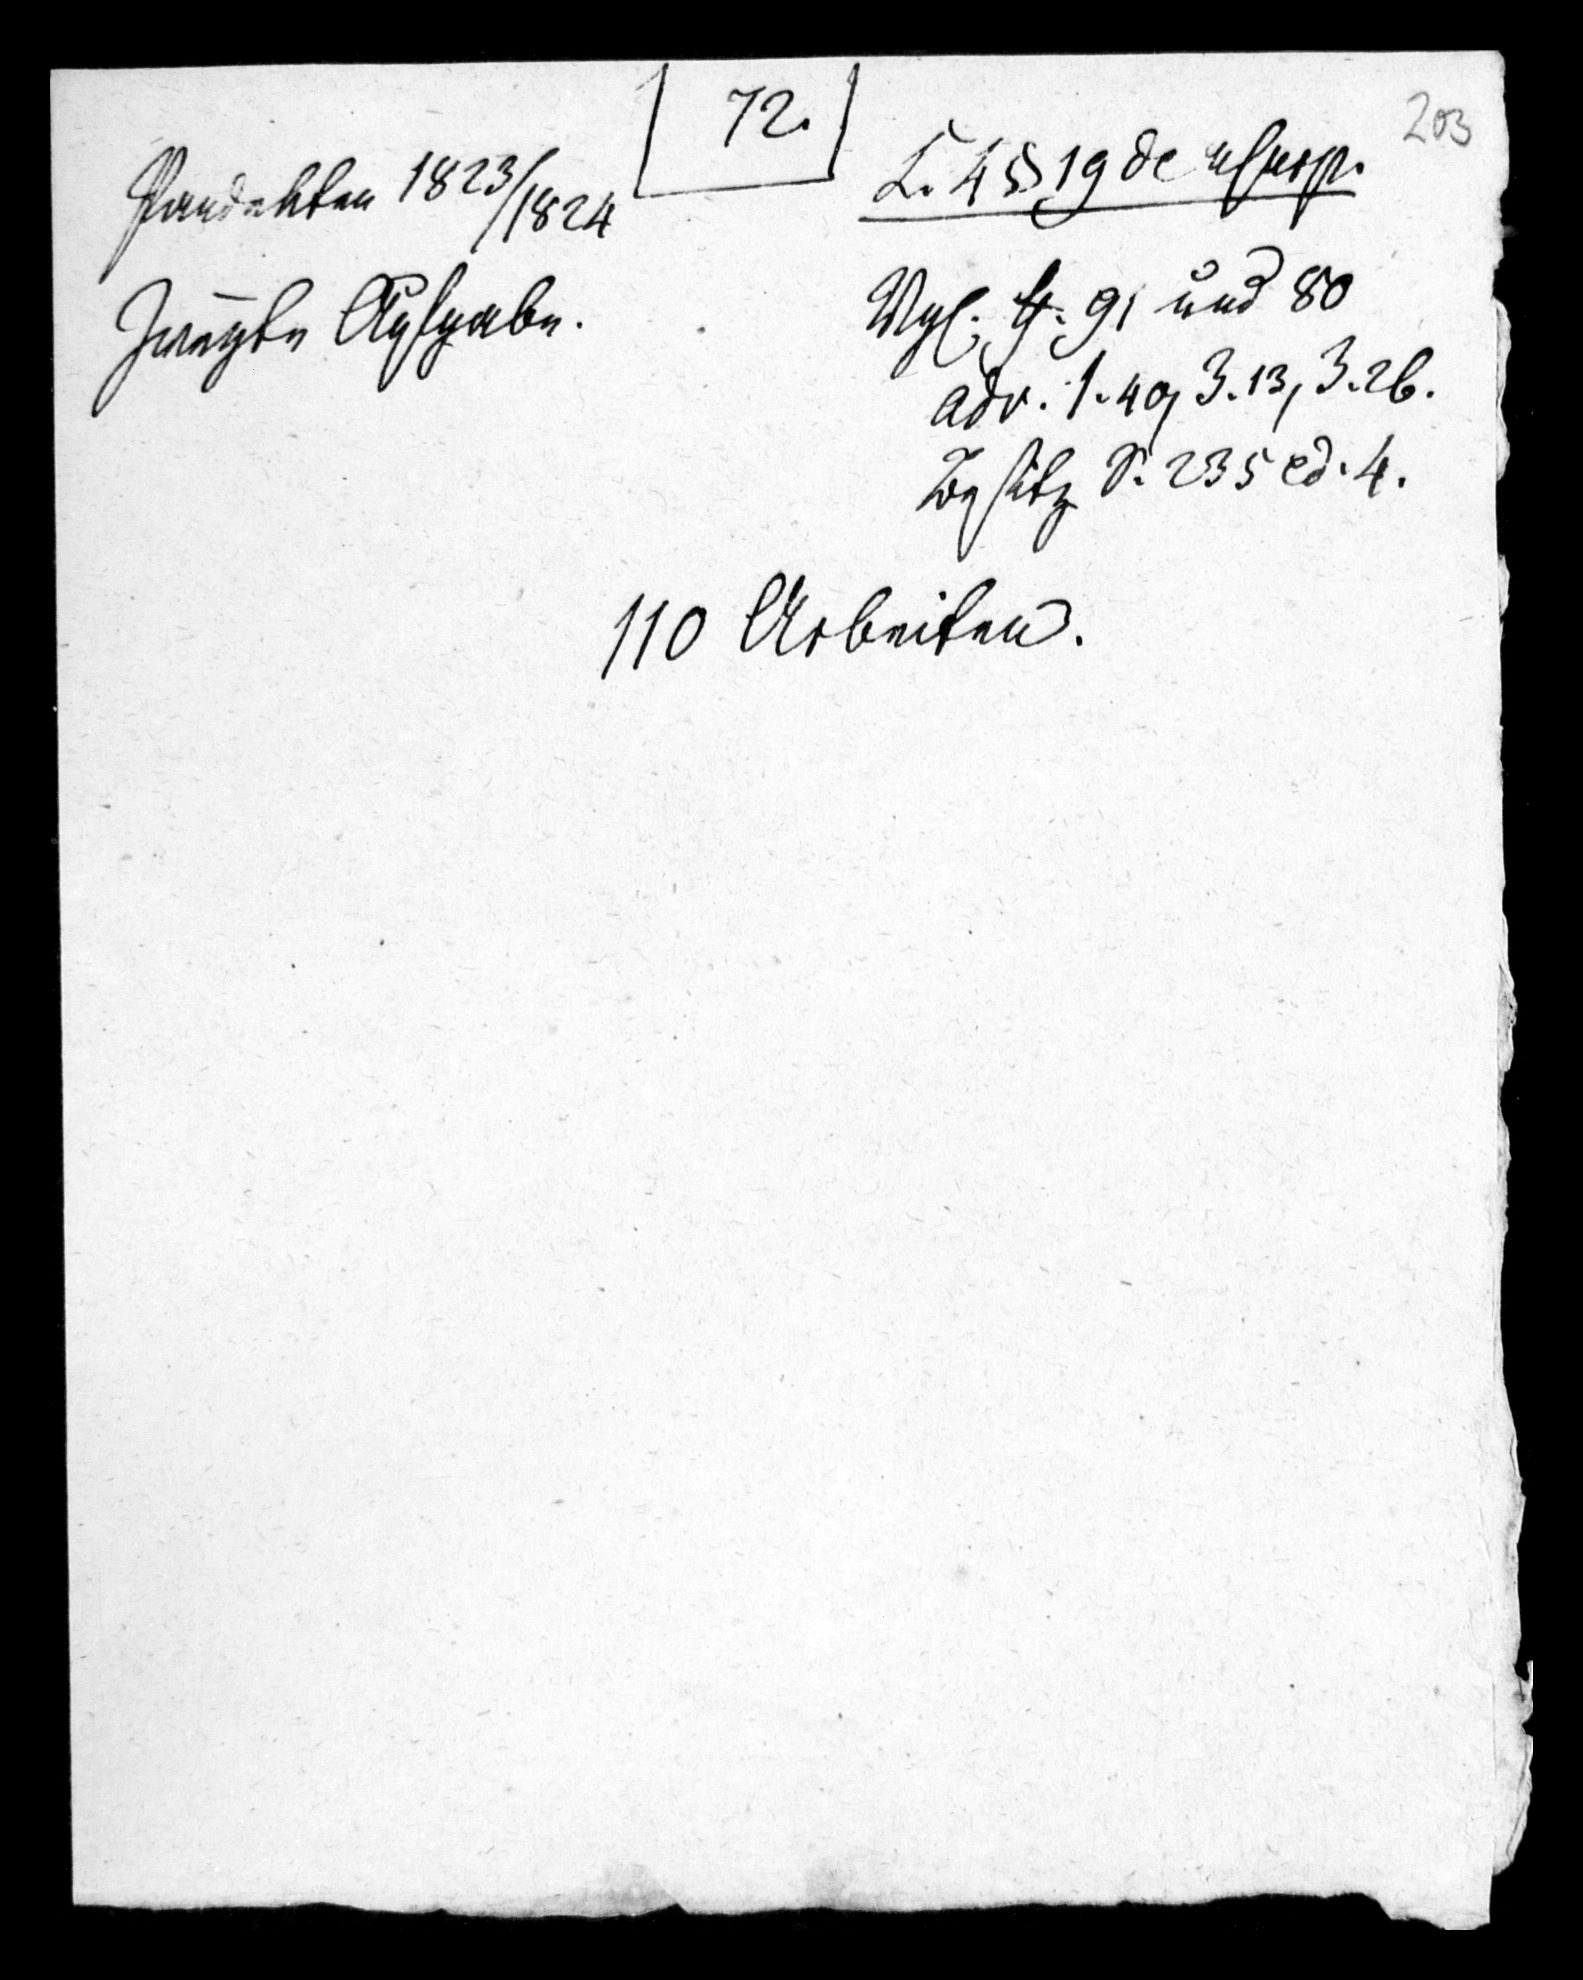 72.
203
Pandekten 1823/1824
L. 4 § 19 de usurp.
Zweyte Aufgabe.
Vgl. fr. 91 und 80
adv. 1.49, 3.13, 3.26.
Besitz S. 235 ed. 4.
110 Arbeiten.